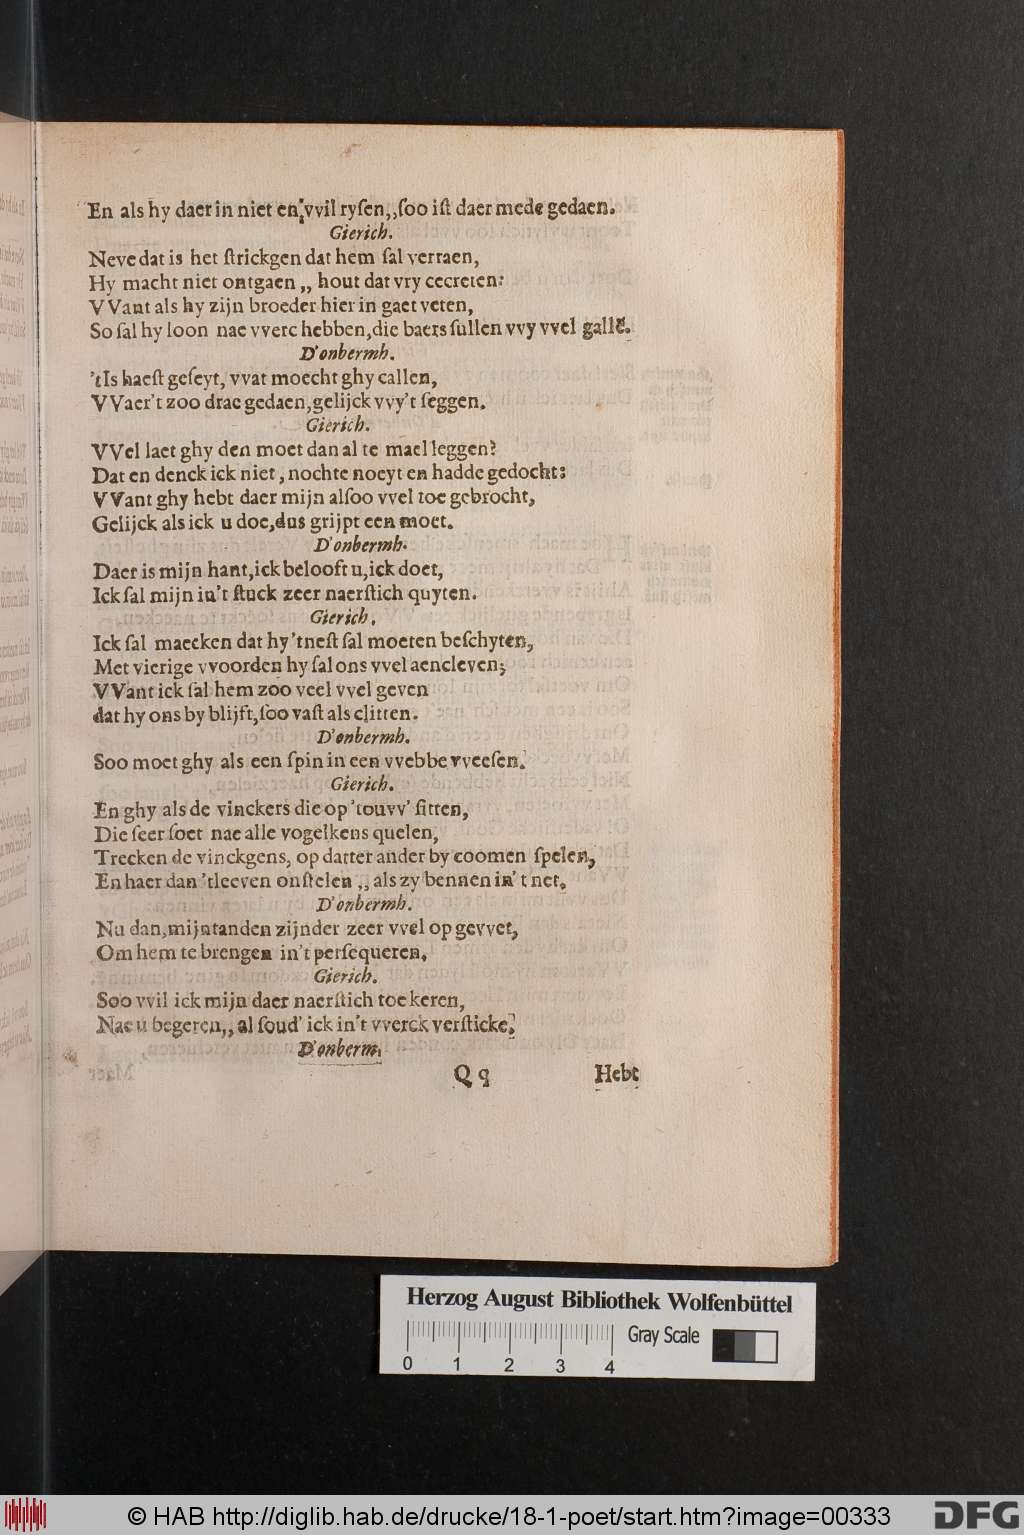 En als hy daer in niet en vvil ryſen,,ſoo iſt daer mede gedaen.
Gierich.
Neve dat is het ſtrickgen dat hem ſal verraen,
Hy macht niet ontgaen ,, hout dat vry cecreten:
VVant als hy zijn broeder hier in gaet veten,
So ſal hy loon nae vverc hebben,die baers ſullen vvy vvel gallē.
D'onbermh.
'tIs haeſt geſeyt, vvat moecht ghy callen,
VVaer't zoo drae gedaen,gelijck vvy't ſeggen.
Gierich.
VVel laet ghy den moet dan al te mael leggen?
Dat en denck ick niet, nochte noeyt en hadde gedocht:
VVant ghy hebt daer mijn alſoo vvel toe gebrocht,
Gelijck als ick u doe,dus grijpt een moet.
D'onbermh.
Daer is mijn hant,ick belooft u,ick doet,
Ick ſal mijn in't ſtuck zeer naerſtich quyten.
Gierich.
Ick ſal maecken dat hy 'tneſt ſal moeten beſchyten,
Met vierige vvoorden hy ſal ons vvel aencleven;
VVant ick ſal hem zoo veel vvel geven
dat hy ons by blijft,ſoo vaſt als clitten.
D'onbermh.
Soo moet ghy als een ſpin in een vvebbe vveeſen.
Gierich.
En ghy als de vinckers die op 'touvv' ſitten,
Die ſeer ſoet nae alle vogelkens quelen,
Trecken de vinckgens, op datter ander by coomen ſpelen,
En haer dan 'tleeven onſtelen ,, als zy bennen in't net.
D'onbermh.
Nu dan,mijn tanden zijnder zeer vvel op gevvet,
Om hem te brengen in't perſequeren.
Gierich.
Soo vvil ick mijn daer naerſtich toe keren,
Nae u begeren,, al ſoud' ick in't vverck verſticke.
D'onberm.
Q q Hebt
Maer
Herzog August Bibliothek Wolfenbüttel
Gray Scale
0 1 2 3 4
© HAB http://diglib.hab.de/drucke/18-1-poet/start.htm?image=00333
DFG